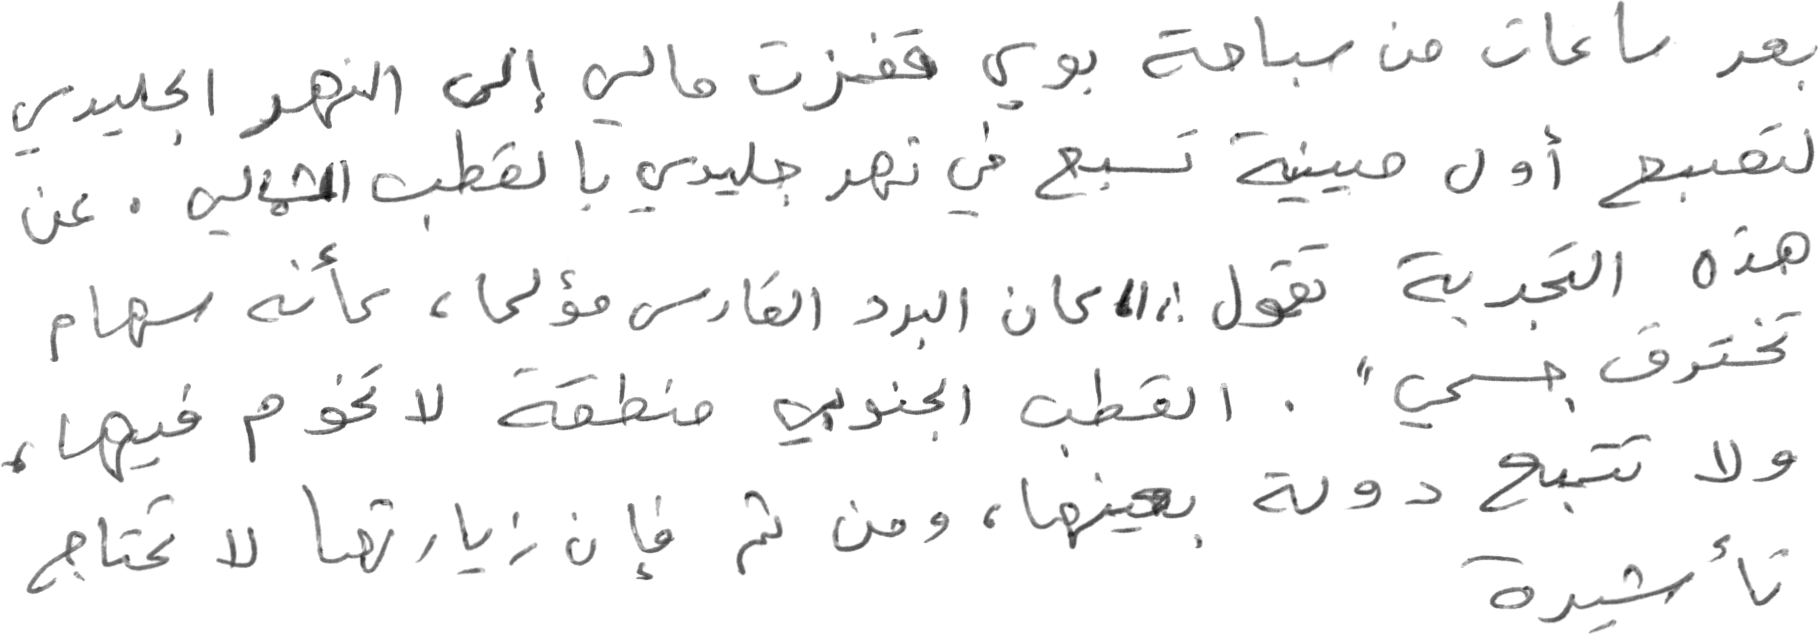 بعد ساعات من سباحة بوي قفزت مالي إلى النهر الجليدي
لتصبح أول صينية تسبح في نهر جليدي بالقطب الشمالي . عن
هذه التجربة تقول : "كان البرد القارس مؤلما، كأنه سهام
تخترق جسمي" . القطب الجنوبي منطقة لا تخوم فيها،
ولا تتبع دولة بعينها، ومن ثم فإن زيارتها لا تحتاج
تأشيرة